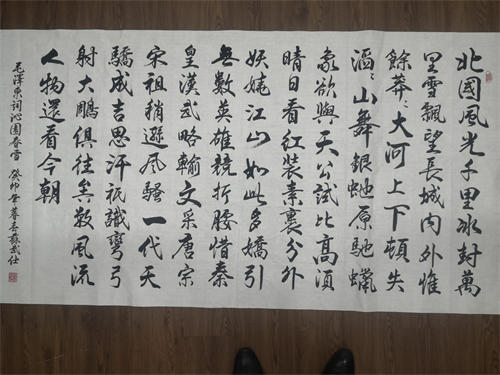 北國風光千里冰封萬
里雪飄望長城內外惟
餘莽〻大河上下頓失
滔〻山舞銀虵原馳蠟
象欲與天公試比高須
晴日看紅裝素裹分外
妖嬈江山如此多嬌引
無數英雄競折腰惜秦
皇漢武略輸文采唐宗
宋祖稍遜風騷一代天
驕成吉思汗祇識彎弓
射大鵰俱往矣數風流
人物還看今朝
毛澤東詞沁園春雪 癸卯年暮春蘇武仕